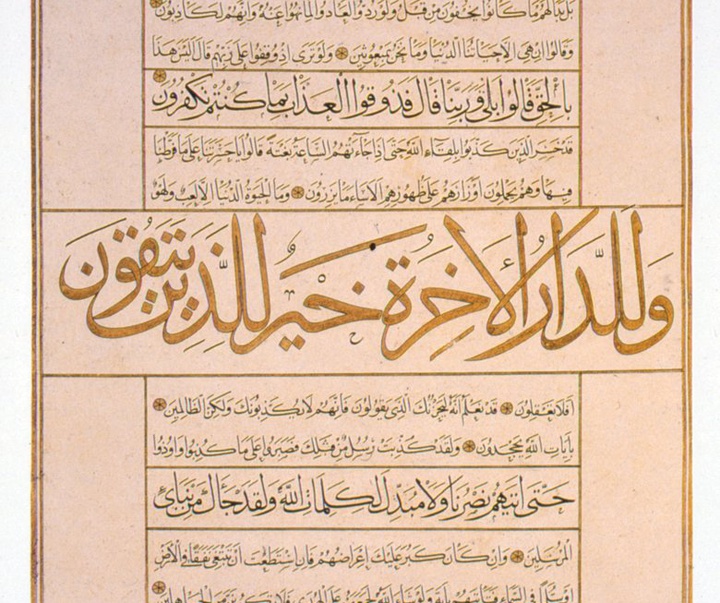 بل بدا لهم ما كانوا يخفون من قبل ولو ردوا لعادوا لما نهوا عنه وانهم لكاذبون
وقالوا ان هي الا حياتنا الدنيا وما نحن بمبعوثين ولو ترى اذ وقفوا على ربهم قال اليس هذا
بالحق قالوا بلى وربنا قال فذوقوا العذاب بما كنتم تكفرون
قد خسر الذين كذبوا بلقاء الله حتى اذا جاءتهم الساعة بغتة قالوا يا حسرتنا على ما فرطنا
فيها وهم يحملون اوزارهم على ظهورهم الا ساء ما يزرون وما الحيوة الدنيا الا لعب ولهو
وَلَلدَّارُ الْأخِرَةُ خَيْرٌ لِلَّذِينَ يَتَّقُونَ
افلا تعقلون قد نعلم انه ليحزنك الذي يقولون فانهم لا يكذبونك ولكن الظالمين
بايات الله يجحدون ولقد كذبت رسل من قبلك فصبروا على ما كذبوا واوذوا
حتى اتيهم نصرنا ولا مبدل لكلمات الله ولقد جاءك من نباى
المرسلين وان كان كبر عليك اعراضهم فان استطعت ان تبتغي نفقا في الارض
او سلما في السماء فتاتيهم باية ولو شاء الله لجمعهم على الهدى فلا تكونن من الجاهلين